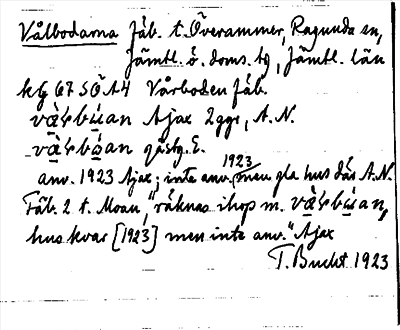 Vålbodarna fäb. t. Överammer, Ragunda sn,
Jämtl. ö. doms. tg, Jämtl. län
kg 67 SÖ A4 Vårboden fäb.
Ajax 2ggr, A.N.
gästg. E.
anv. 1923 Ajax; inte anv. 1923 men gla hus där A.N.
Fäb. 2 t. Moan, "räknas ihop m.
hus kvar [1923] men inte anv." Ajax
T. Bucht 1923